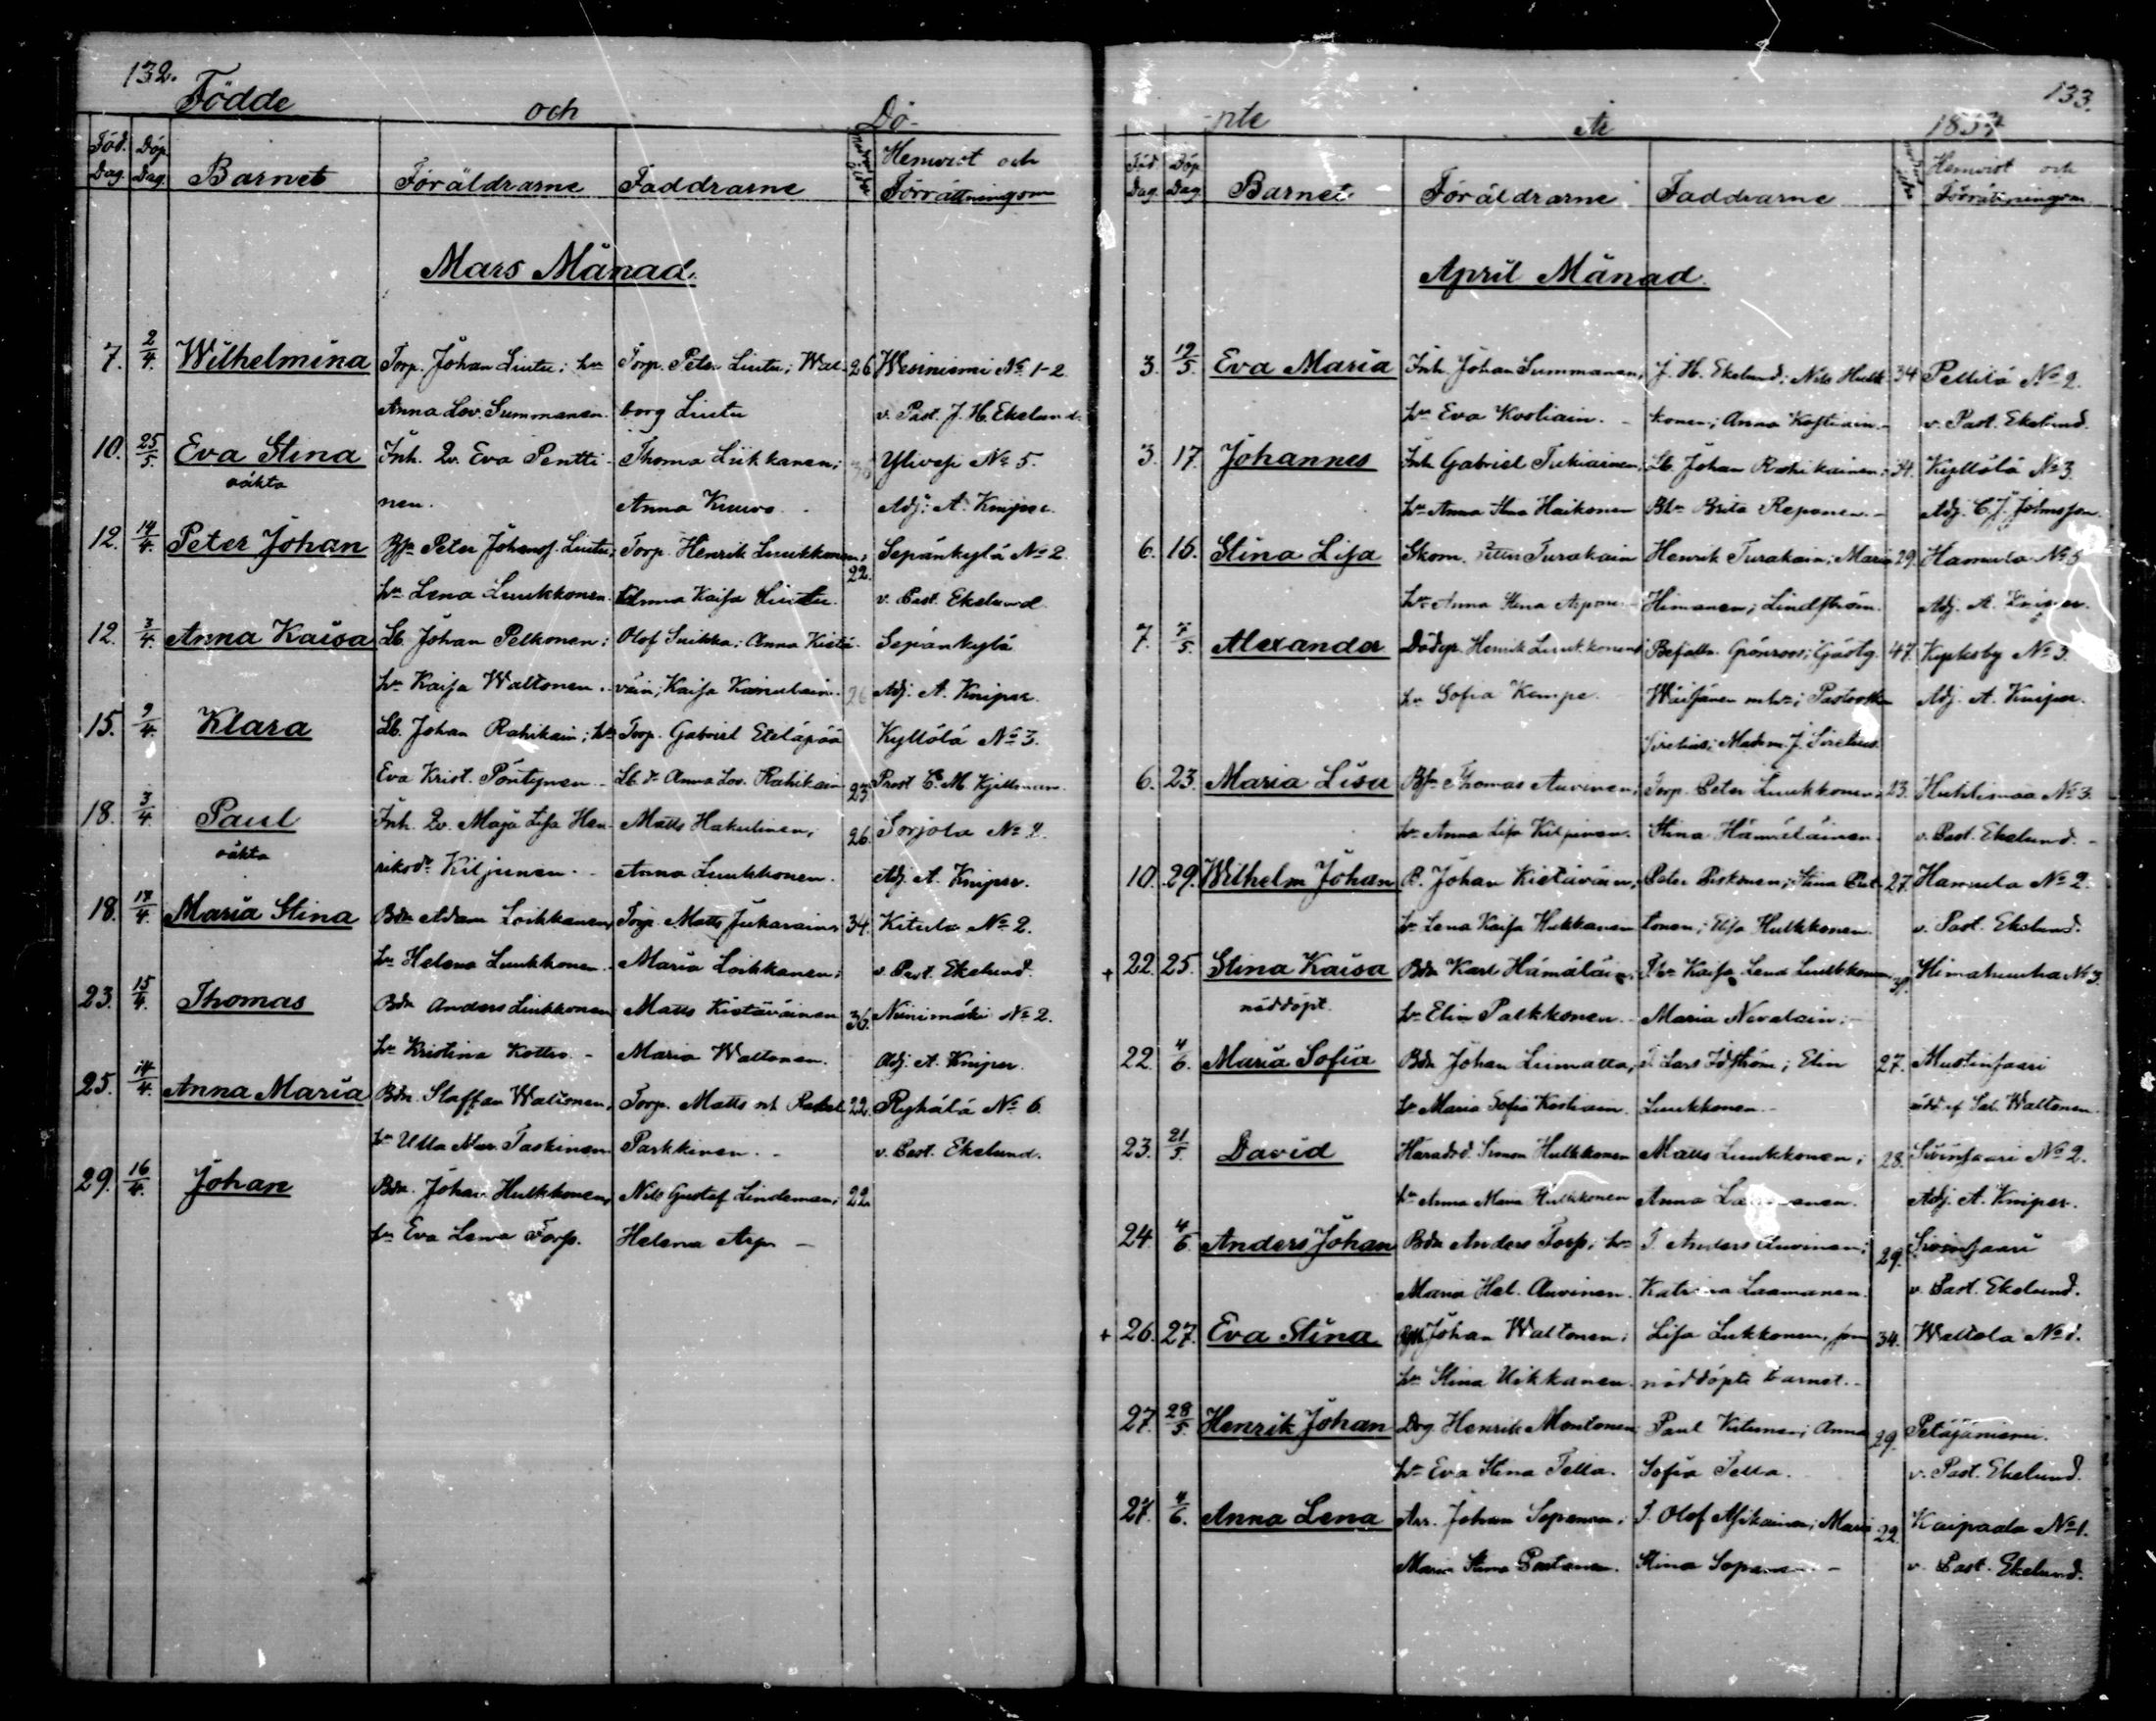 132.
Födde och Dö-
Föd. Dag. Döp. Dag. Barnet Föräldrarne Faddrarne Hemvist och Förrättningsm
Mars Månad.
7. 2/4. Wilhelmina Torp. Johan Liutu; hu Torp. Peter Liutu; Wal- 26 Wesiniemi No 1-2
Anna Lov. Summanen. borg Liutu v. Past. J. H. Ekelund.
10. 25/5. Eva Stina Inh. Qv. Eva Pentti- Thoma Liikkanen; Ylivesi No 5.
oäkta nen. Anna Kuuvo Adj. A. Kniper.
12. 14/4. Peter Johan Peter Johans. Liutu; Torp. Henrik Luukkonen; 22. Sepänkylä No 2.
hu Lena Luukkonen. Anna Kaisa Liutu. v. Past. Ekelund.
12. 3/4. Anna Kaisa Lb. Johan Pelkonen; Olof Suikka; Anna Kistä- Sepänkylä
hu Kaisa Waltonen. väin; Kaisa 26 Adj. A. Kniper.
15. 9/4. Klara Lb. Johan Rahikain; hu Torp. Gabriel Eteläpää Kyllölä No 3.
Eva Krist. Pöntynen Lb. dr Anna Lov. Rahikain 23. Prost C. M. Kjellman.
18. 3/4. Paul Inh. Qv. Maja Lisa Hen- Matts Hakulinen; 26. Sorjola No 2.
oäkta riksdr Kiljunen. Anna Luukkonen. Adj. A. Kniper.
18. 18/4. Maria Stina Bdn Adam Loikkanen, Torp. Matts Jukarain; 34. Kitula No 2.
hu Helena Luukkonen. Maria Loikkanen; v. Past. Ekelund.
23. 15/4. Thomas Bdn Anders Luukkonen Matts Kistäväinen 36. Niinimäki No 2.
hu Kristina Kottro. Maria Waltonen. Adj. A. Kniper.
25. 14/4. Anna Maria Bdn. Staffan Waltonen, Torp. Matts o. Rakel 22. Ryhälä No 6.
hu Ulla Mar. Taskinen. Parkkinen. v. Past. Ekelund.
29. 16/4. Johan Bdn. Johan Hulkkonen, Nils Gustaf Lindeman; 22.
hu Eva Lena Torp. Helena
133.
-pte År 1857
Föd Dag. Döp Dag. Barnet Föräldrarne Faddrarne Hemvist och Förrättningsm.
April Månad.
3. 19/5. Eva Maria Inh. Johan Summanen; J. H. Ekelund; Nils Hulk- 34 Pellilä No 2.
hu Eva Kostiain. konen; Anna Kostiain. v. Past. Ekelund.
3. 17. Johannes Inh Gabriel Tukiainen, Lb. Johan Rahikainen; 34. Kyllölä No 3.
hu Anna Stina Haikonen Brita Reponen. Adj. C. J. Johnsson.
6. 16. Stina Lisa Skom. Petter Turakain Henrik Turakain; Maria 29. Hamula No 5
hu Anna Stina Himanen; Lindström. Adj. A. Kniper.
7. 4/5. Alexander Dödgr. Henrik Luukkonen; Befalln. Grönroos; Gästg. 47. Kyrkoby No 3.
hu Sofia Kempe. Wäisänen m. hu; Pastorskan Adj. A. Kniper.
Sirelius; Madem. J. Sirelius.
6. 23. Maria Lisa Thomas Auvinen; Torp. Peter Luukkonen; 23. Huhtimaa No 3.
hu Anna Lisa Kiljunen. Stina Hämäläinen. v. Past. Ekelund.
10. 29. Wilhelm Johan B. Johan Kistäväin; Peter Piskonen; Stina 27. Hamula No 2.
hu Lena Kaisa Hukkanen tonen; Elsa Hulkkonen. v. Past. Ekelund.
+ 22. 25. Stina Kaisa Bdn Karl Hämäläin; Kaisa Lena Luukkonen Himahuuha No 3.
nöddöpt. hu Elin Palkkonen. Maria Nevalain;
22. 4/6. Maria Sofia Bdn Johan Liimatta; T. Lars Idström; Elin 27. Mustinsaari
hu Maria Sofia Kostiain. Luukkonen. nödd. af Sal. Waltonen.
23. 21/5. David Häradsd. Simon Hulkkonen Matts Luukkonen; 28. Sivinsaari No 2.
hu Anna Maria Hulkkonen Anna Adj. A. Kniper.
24. 4/6. Anders Johan Bdn Anders Torp; hu T. Anders Auvinen; 29. Sivinsaari
Maria Hel. Auvinen. Katrina Laamanen. v. Past. Ekelund.
+ 26. 27. Eva Stina Johan Waltonen; Lisa Lukkonen, som 34. Waltola No 1.
hu Stina Uikkanen. nöddöpte barnet.
27. 28/5. Henrik Johan Drg. Henrik Montonen; Paul Kitunen; Anna 29. Petäjäniemi.
hu Eva Stina Tella. Sofia Tella. v. Past. Ekelund.
27. 4/6. Anna Lena Arr. Johan Sopanen; T. Olof Asikainen; Maria 22. Kaipaala No 1.
Maria Stina Partanen. Stina Sopanen v. Past. Ekelund.